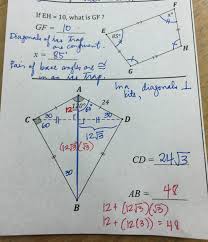 If EH = 10, what is GF?
GF = 10
Diagonals of isos Trap
are congruent.
x = 85°
Pair of base angles are ≅
in an isos Trap.
E
F
85°
x°
G
H
In a kite, diagonals ⊥
A
12
60
24
C
30
60
30
D
12√3
(12√3)(√3)
30
B
CD = 24√3
AB = 48
12 + (12√3)(√3)
12 + (12(3)) = 48